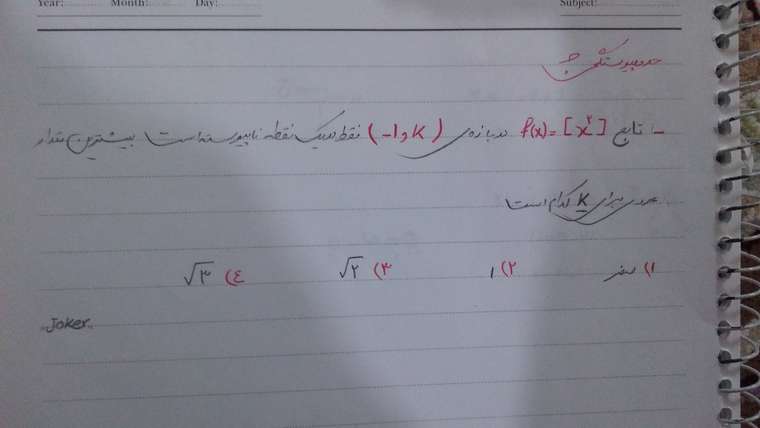 Year: Month: Day: Subject:
حد و پیوستگی
- تابع f(x) = [x²] در بازه‌ی (-1 و K) فقط در یک نقطه ناپیوسته است بیشترین مقدار
عددی برای K کدام است
۱) صفر ۲) ۱ ۳) √۲ ٤) √۳
Joker